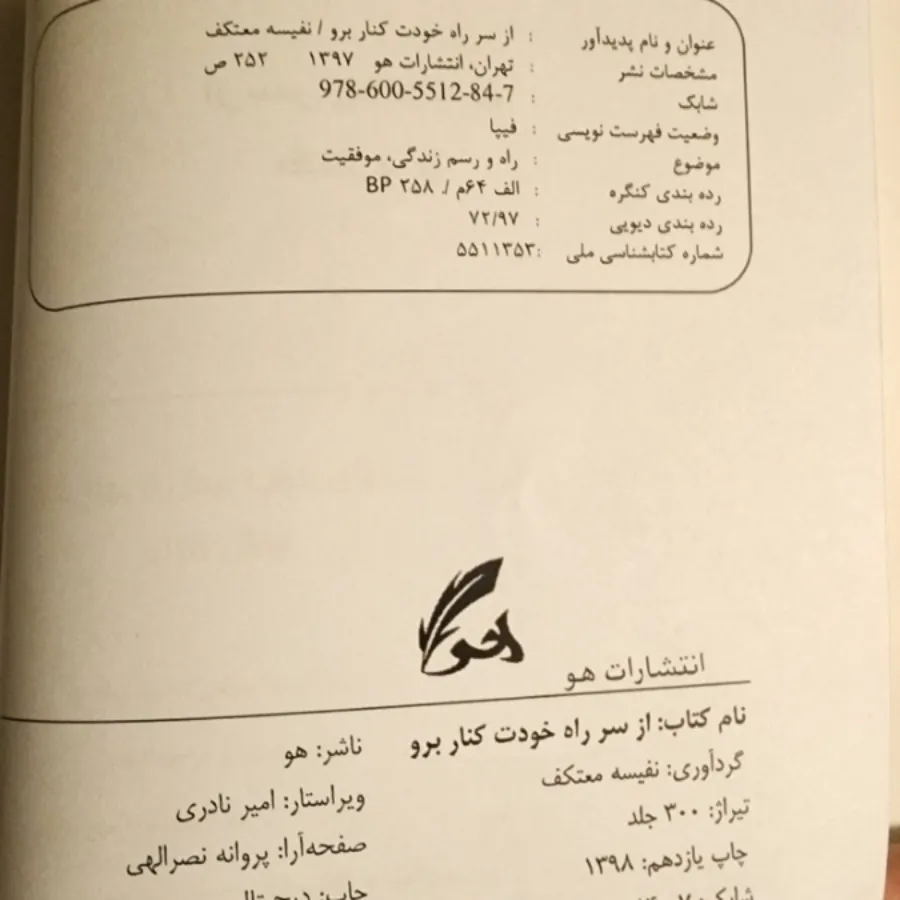 عنوان و نام پدیدآور : از سر راه خودت کنار برو / نفیسه معتکف
مشخصات نشر : تهران، انتشارات هو ۱۳۹۷ ۲۵۲ ص
شابک : 978-600-5512-84-7
وضعیت فهرست نویسی : فیپا
موضوع : راه و رسم زندگی، موفقیت
رده بندی کنگره : الف ۶۴م /. ۲۵۸ BP
رده بندی دیویی : ۷۲/۹۷
شماره کتابشناسی ملی :۵۵۱۱۳۵۳
هو
انتشارات هو
نام کتاب: از سر راه خودت کنار برو
گردآوری: نفیسه معتکف
تیراژ: ۳۰۰ جلد
چاپ یازدهم: ۱۳۹۸
شابک:
ناشر: هو
ویراستار: امیر نادری
صفحه‌آرا: پروانه نصرالهی
چاپ: